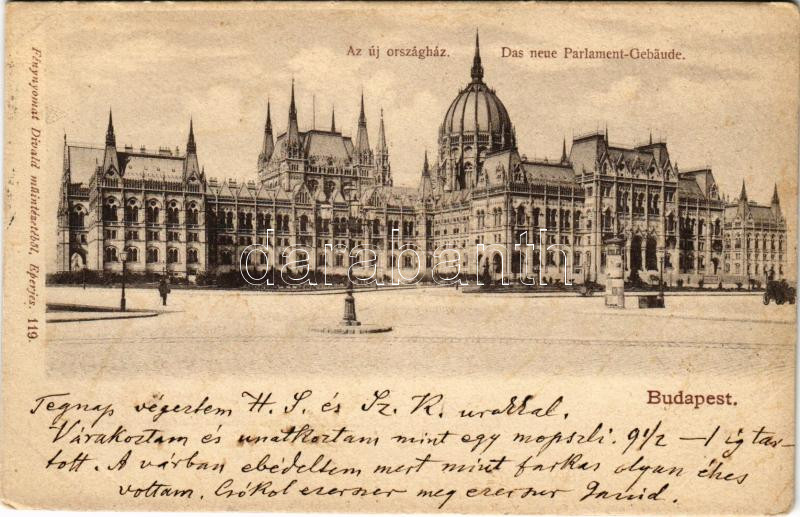 Az új országház. Das neue Parlament-Gebäude.
Fénynyomat Divald műintézetéből, Eperjes. 119.
darabanth
Budapest.
Tegnap végeztem H. S. és Sz. K. urakkal.
Várakoztam és unatkoztam mint egy mopszli. 9 1/2 – 1 ig tar-
tott. A várban ebédeltem mert mint farkas olyan éhes
voltam. Csókol ezerszer meg ezerszer